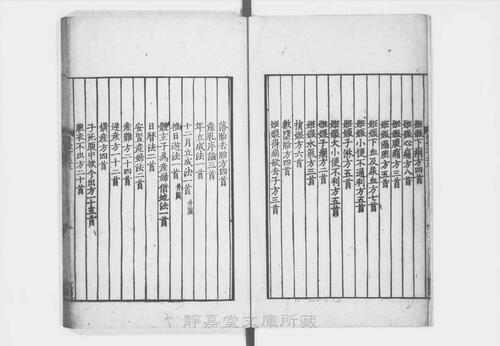 妊娠下痢方四首
妊娠心痛方八首
妊娠腹痛方三首
妊娠傷胞方五首
妊娠下血及尿血方七首
妊娠小便不通利方五首
妊娠子淋方五首
妊娠大小便不利方五首
妊娠子癎方二首
妊娠水氣方三首
損娠方六首
數墮胎方四首
妊娠得病欲去子方三首
落胎去胎方四首
産乳序論三首
年立成法一首
十二月立成法一首 并圖
推日遊法一首 并圖
體玄子為産婦借地法一首
日曆法二首
安置産婦法二首
産難方二十四首
逆産方一十二首
橫産方四首
子死腹中欲令出方一十五首
胞衣不出方二十首
靜嘉堂文庫所藏